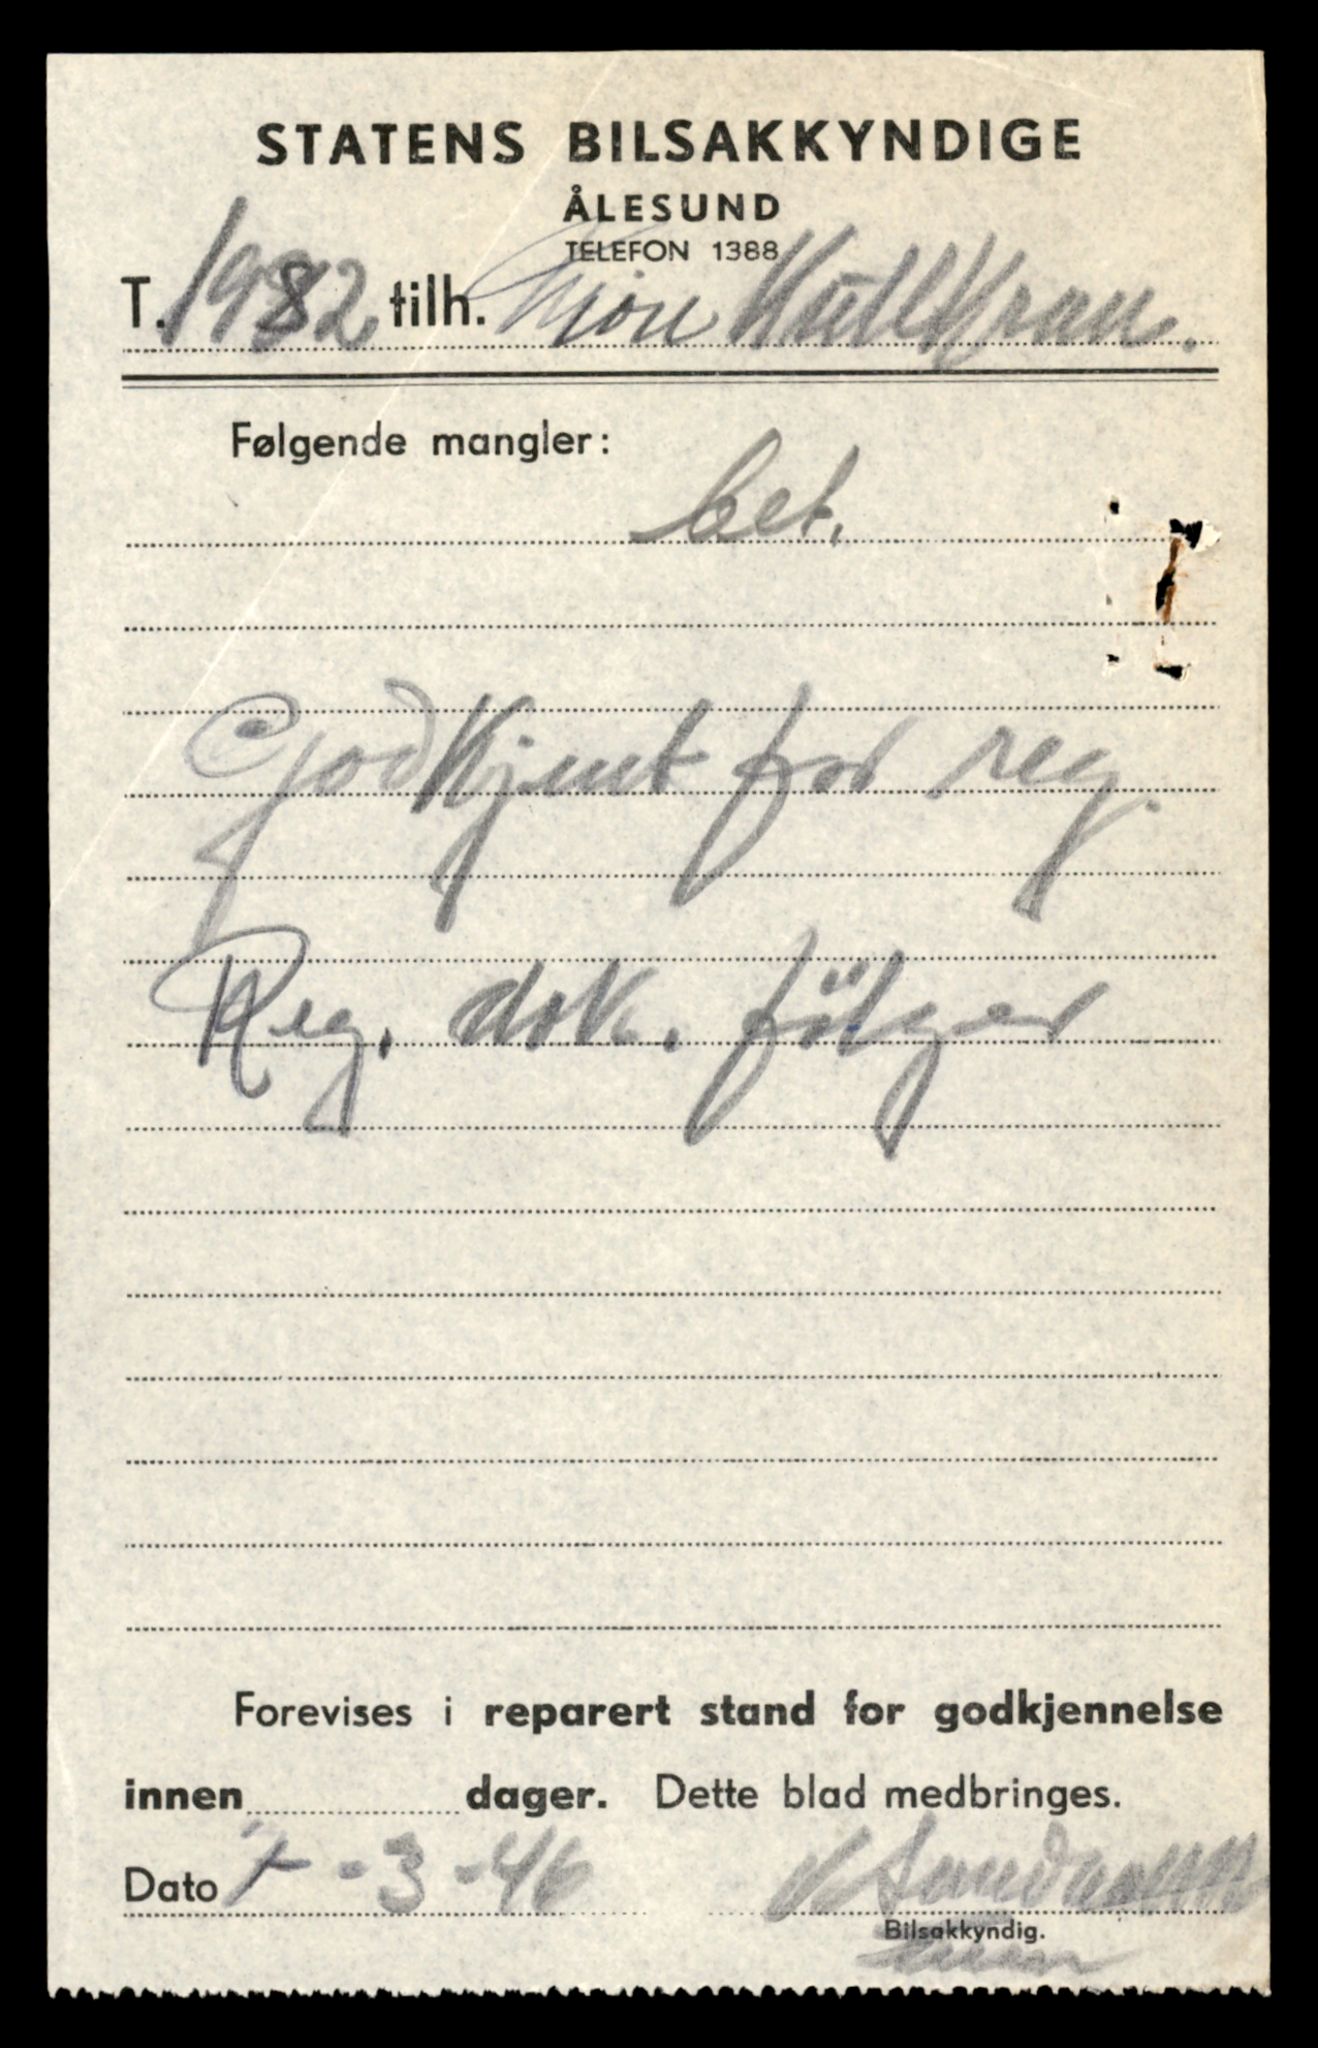 STATENS BILSAKKYNDIGE
ÅLESUND
TELEFON 1388
T. 1982 tilh.
Følgende mangler:
bet.
Godkjent for reg.
Reg. dok. fölger
Forevises i reparert stand for godkjennelse
innen dager. Dette blad medbringes.
Dato 7-3-46
Bilsakkyndig.